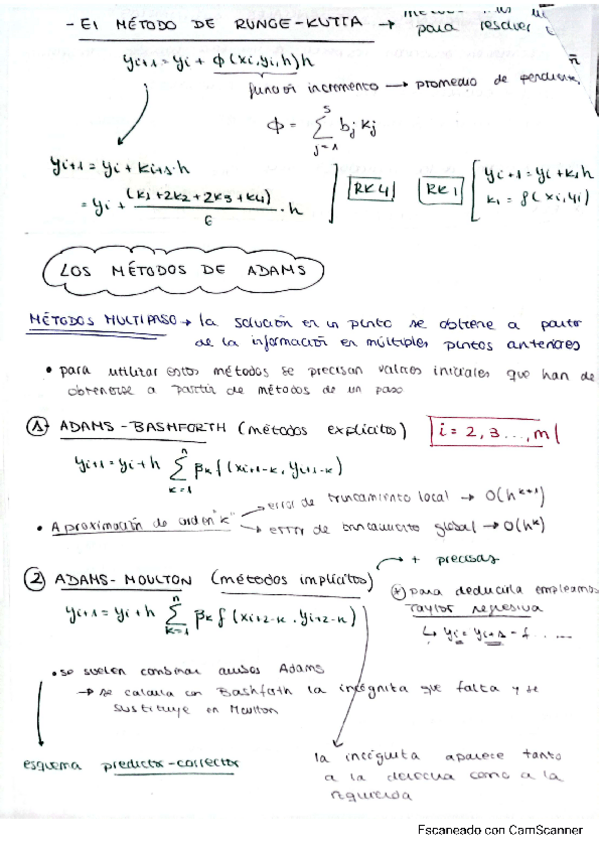 - El MÉTODO DE RUNGE-KUTTA →
para resolver
yi+1 = yi + ϕ(xi, yi, h)h
función incremento → promedio de
ϕ = Σ_{j=1}^{s} bj kj
yi+1 = yi + ki+1·h
= yi + (k1+2k2+2k3+k4)/6 · h
RK4
RK1
yi+1 = yi + k1h
k1 = f(xi, yi)
LOS MÉTODOS DE ADAMS
MÉTODOS MULTIPASO → la solución en un punto se obtiene a partir
de la información en múltiples puntos anteriores
• para utilizar estos métodos se precisan valores iniciales que han de
obtenerse a partir de métodos de un paso
① ADAMS-BASHFORTH (métodos explícitos) i = 2, 3..., m
yi+1 = yi + h Σ_{k=1}^{n} βk f(xi+1-k, yi+1-k)
→ error de truncamiento local → O(h^{k+1})
• Aproximación de orden "k"
→ error de truncamiento global → O(h^k)
→ + precisas
② ADAMS-MOULTON (métodos implícitos)
yi+1 = yi + h Σ_{k=1}^{n} βk f(xi+2-k, yi+2-k)
(*) para deducirla empleamos
Taylor regresiva
↳ yi = yi+1 - f......
• se suelen combinar ambos Adams
→ se calcula con Bashfath la incógnita que falta y se
sustituye en Moulton
esquema predictor-corrector
la incógnita aparece tanto
a la derecha como a la
izquierda
Escaneado con CamScanner